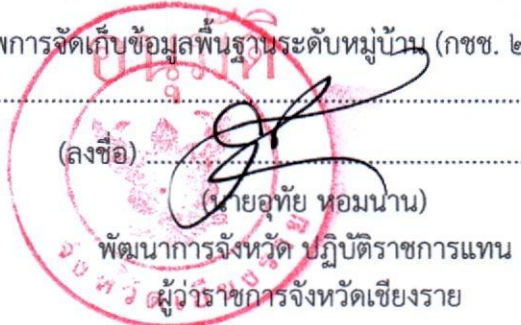 พการจัดเก็บข้อมูลพื้นฐานระดับหมู่บ้าน (กชช. ๒
อนุมัติ
(ลงชื่อ)
(นายอุทัย หอมนาน)
พัฒนาการจังหวัด ปฏิบัติราชการแทน
ผู้ว่าราชการจังหวัดเชียงราย
จังหวัดเชียงราย